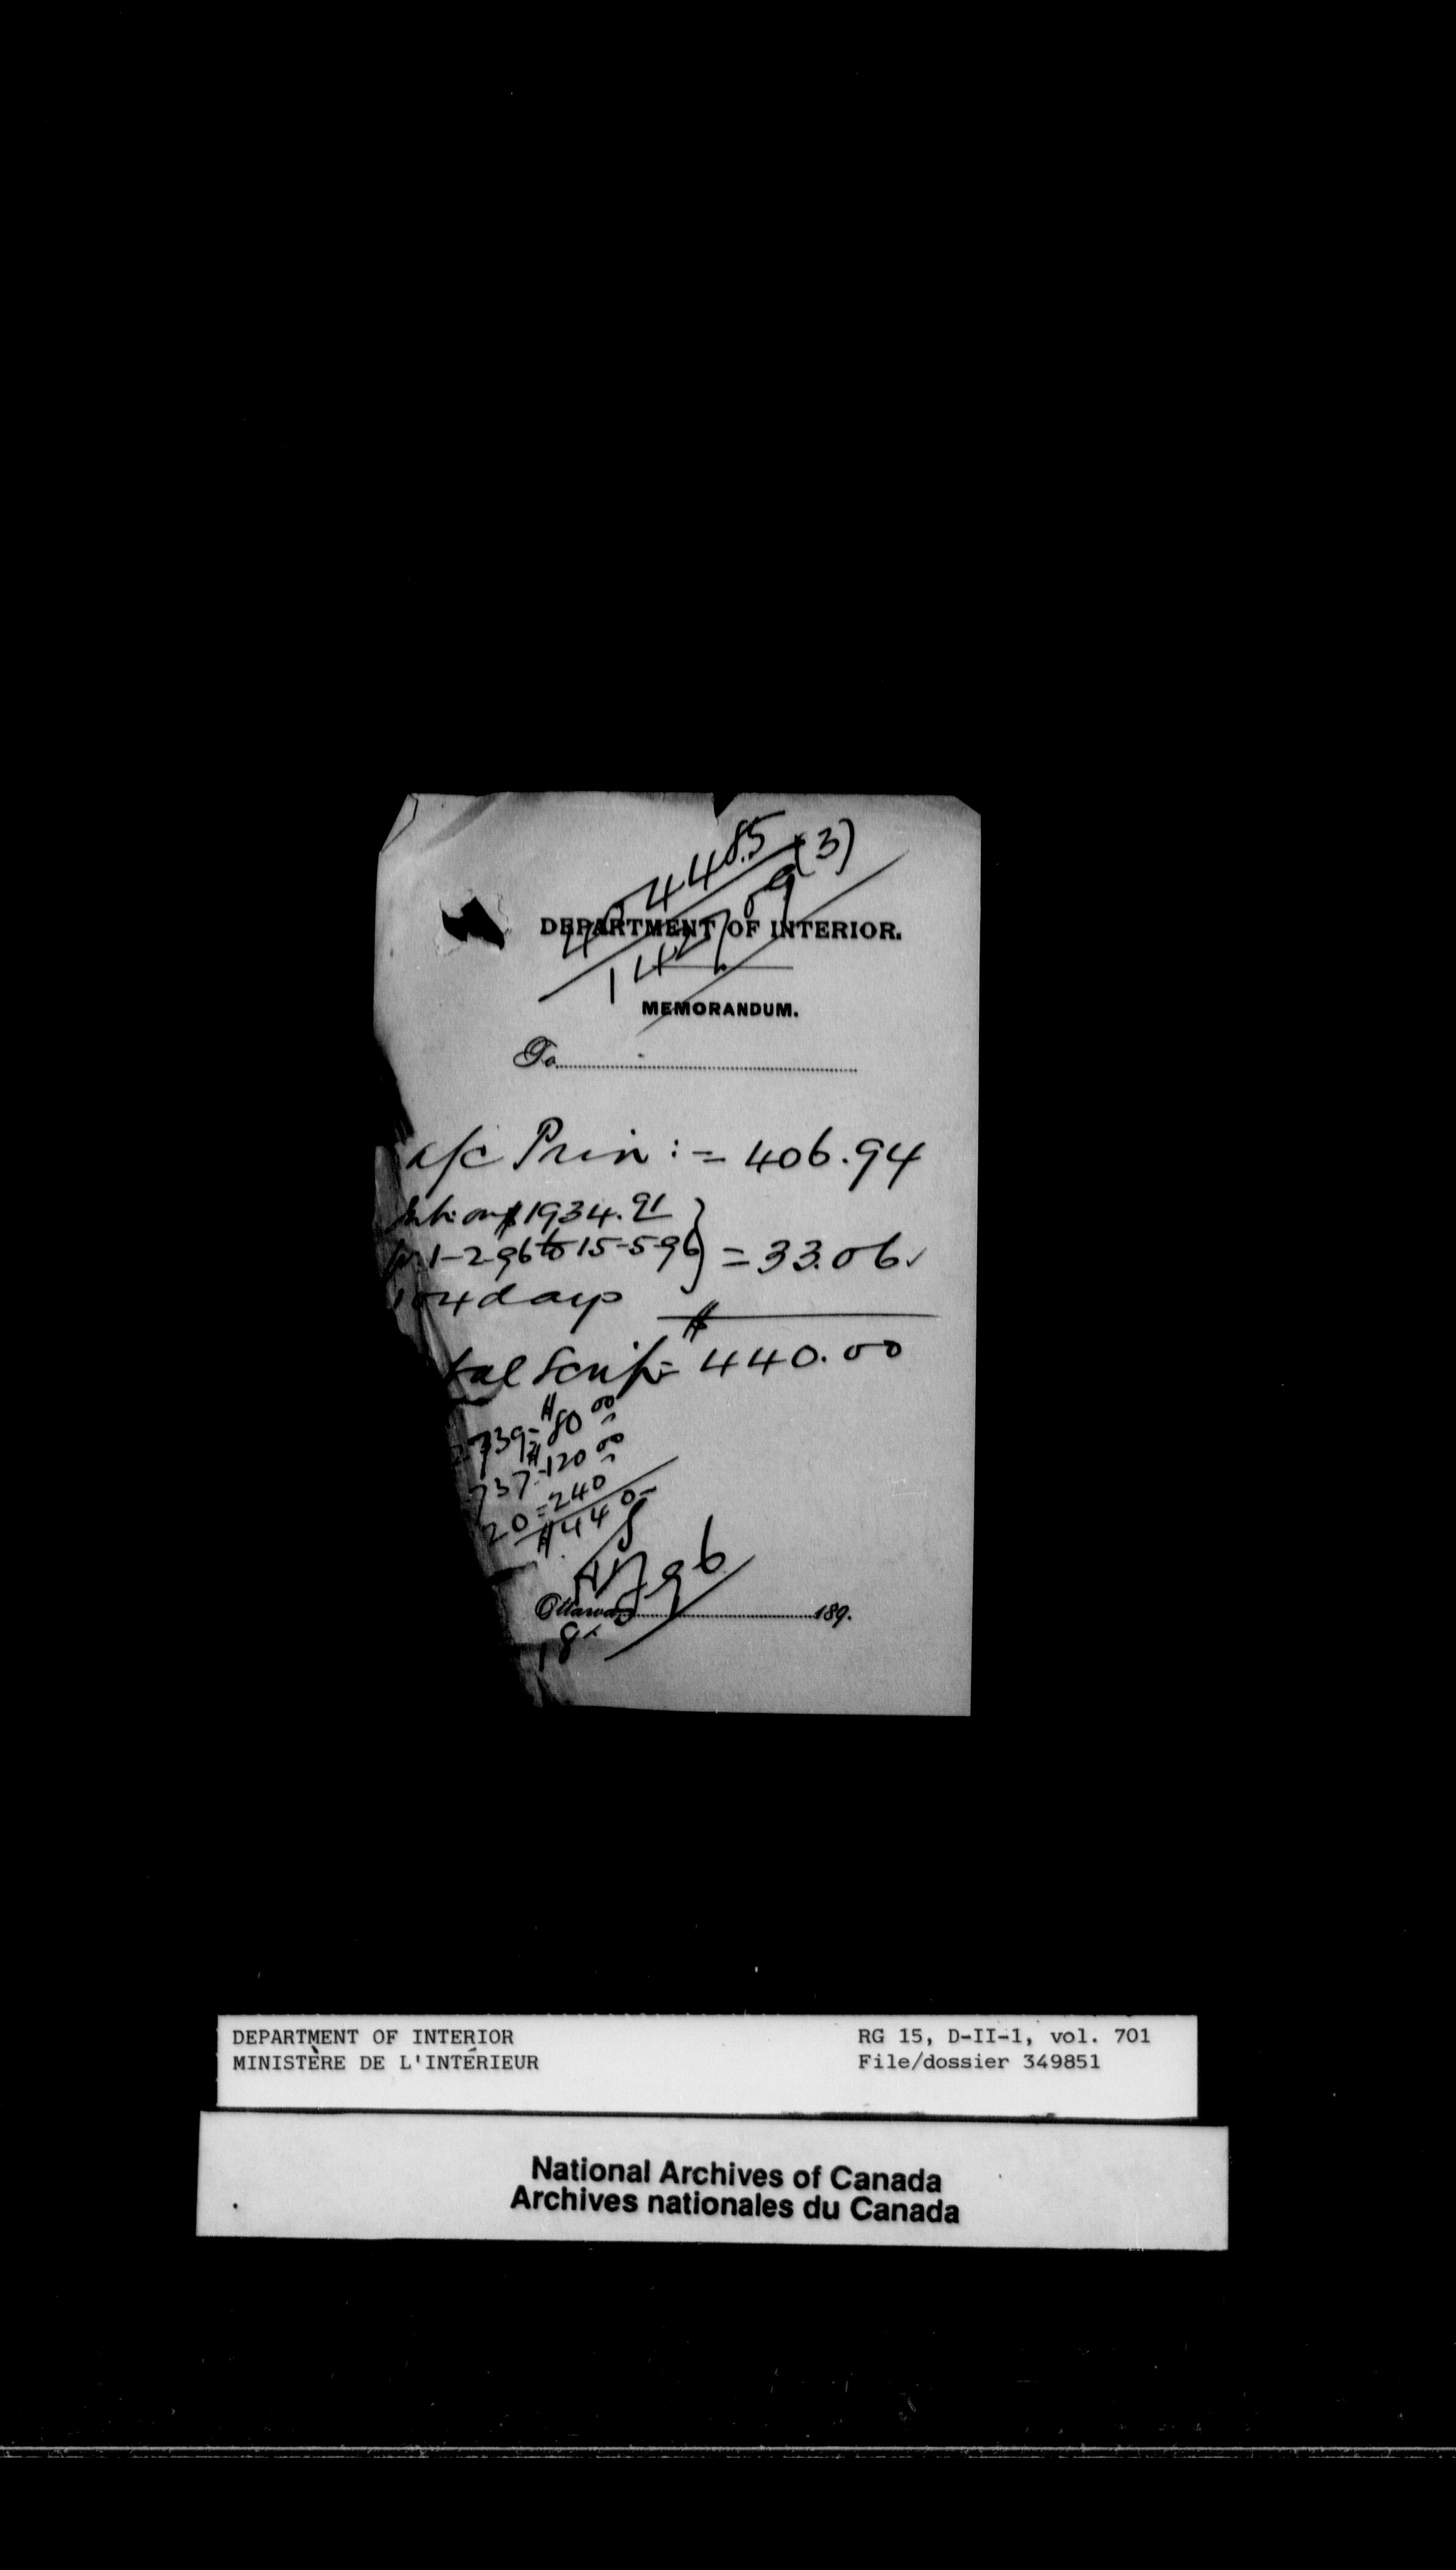 404485 (3)
142709
DEPARTMENT OF INTERIOR.
MEMORANDUM.
To
a/c Prin: = 406.94
Int: on $1934.91
fr. 1-2-96 to 15-5-96 } = 33.06
104 days
tal Scrip = $440.00
739 = $80 00
737 = $120 00
20 = 240
$440-
Ottawa 189.
18
96
DEPARTMENT OF INTERIOR
MINISTÈRE DE L'INTÉRIEUR
RG 15, D-II-1, vol. 701
File/dossier 349851
National Archives of Canada
Archives nationales du Canada